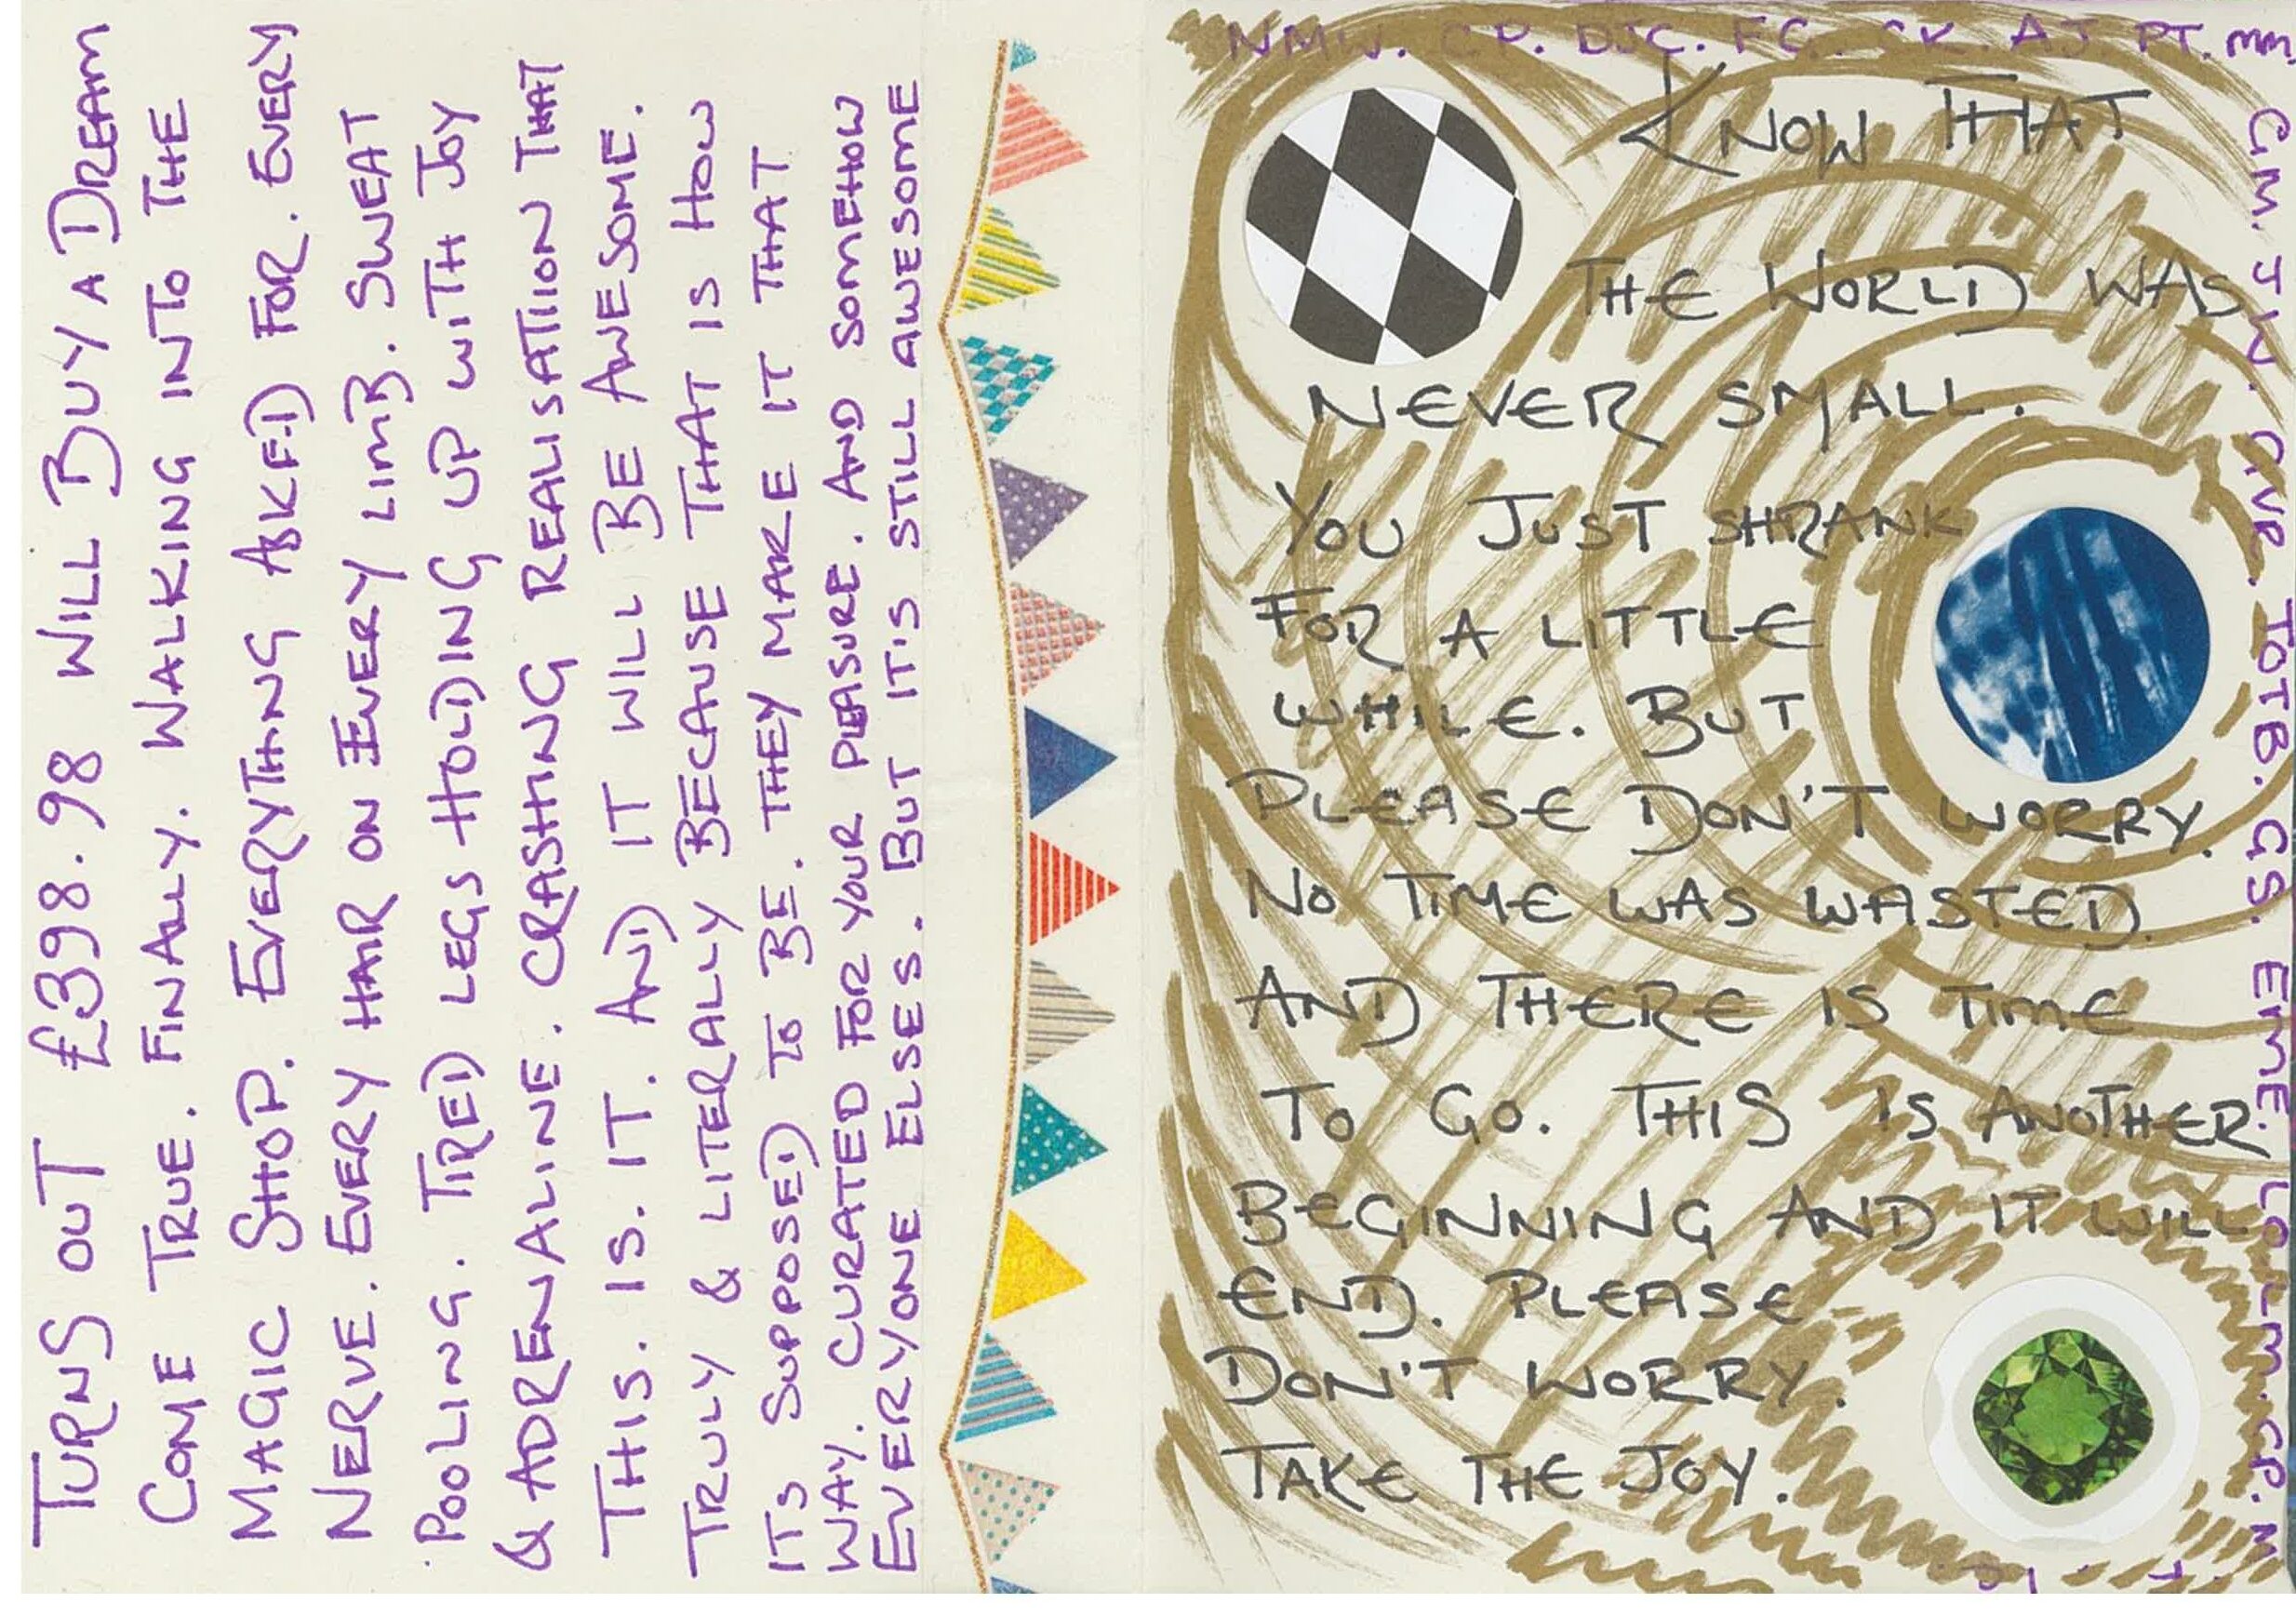 TURNS OUT £398.98 WILL BUY A DREAM
COME TRUE. FINALLY. WALKING INTO THE
MAGIC SHOP. EVERYTHING ASKED FOR. EVERY
NERVE. EVERY HAIR ON EVERY LIMB. SWEAT
POOLING. TIRED LEGS HOLDING UP WITH JOY
& ADRENALINE. CRASHING REALISATION THAT
THIS. IS. IT. AND IT WILL BE AWESOME.
TRULY & LITERALLY BECAUSE THAT IS HOW
ITS SUPPOSED TO BE. THEY MAKE IT THAT
WAY. CURATED FOR YOUR PLEASURE. AND SOMEHOW
EVERYONE ELSES. BUT IT'S STILL AWESOME
NMW. CP. DJC. FC. CK. AJ. PT. MM
KNOW THAT
THE WORLD WAS
NEVER SMALL.
YOU JUST SHRANK
FOR A LITTLE
WHILE. BUT
PLEASE DON'T WORRY.
NO TIME WAS WASTED.
AND THERE IS TIME
TO GO. THIS IS ANOTHER
BEGINNING AND IT WILL
END. PLEASE
DON'T WORRY.
TAKE THE JOY.
GM. JW. GVR. TOTB. GS. EME.